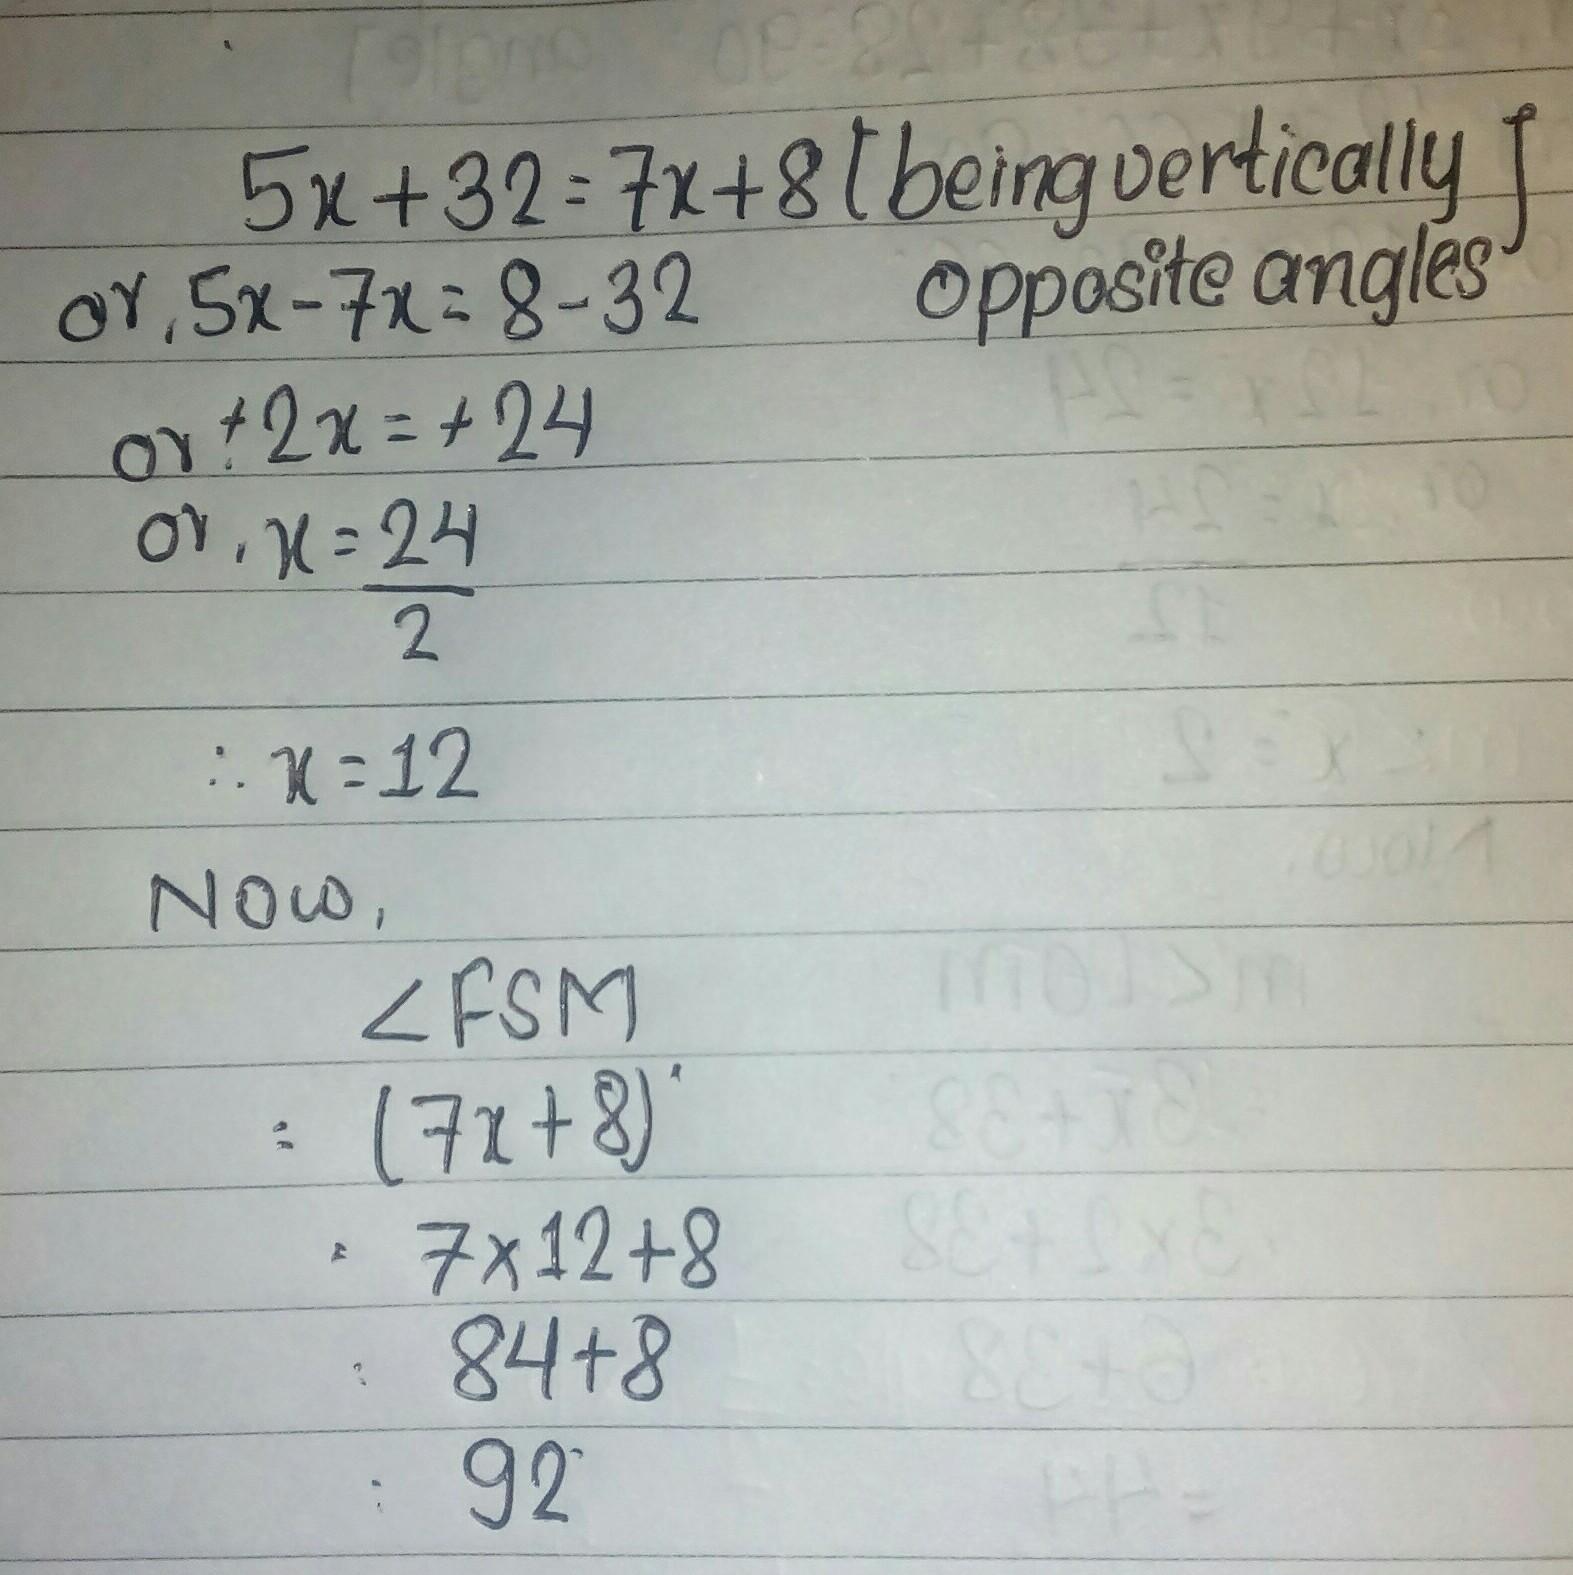 5x+32=7x+8 [being vertically]
opposite angles
or, 5x-7x=8-32
or +2x=+24
or, x=24
2
∴ x=12
Now,
<FSM
= (7x+8)°
= 7×12+8
= 84+8
= 92°